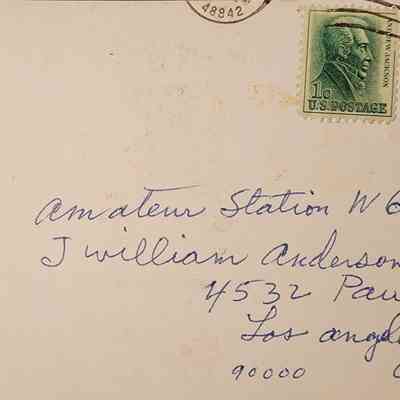 48942
ANDREW JACKSON
1¢
U.S. POSTAGE
Amateur Station W6
J William Anderson
4532 Pau
Los angel
90000